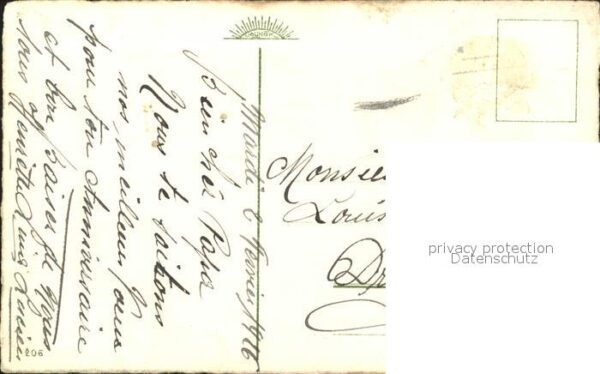 Mardi 2 Février 1926
Bien cher Papa
Nous te faisons
nos meilleurs voeux
pour ton Anniversaire
et bon baiser de nous
tous Henriette Louis Lucien
Monsie
Louis
206
privacy protection
Datenschutz